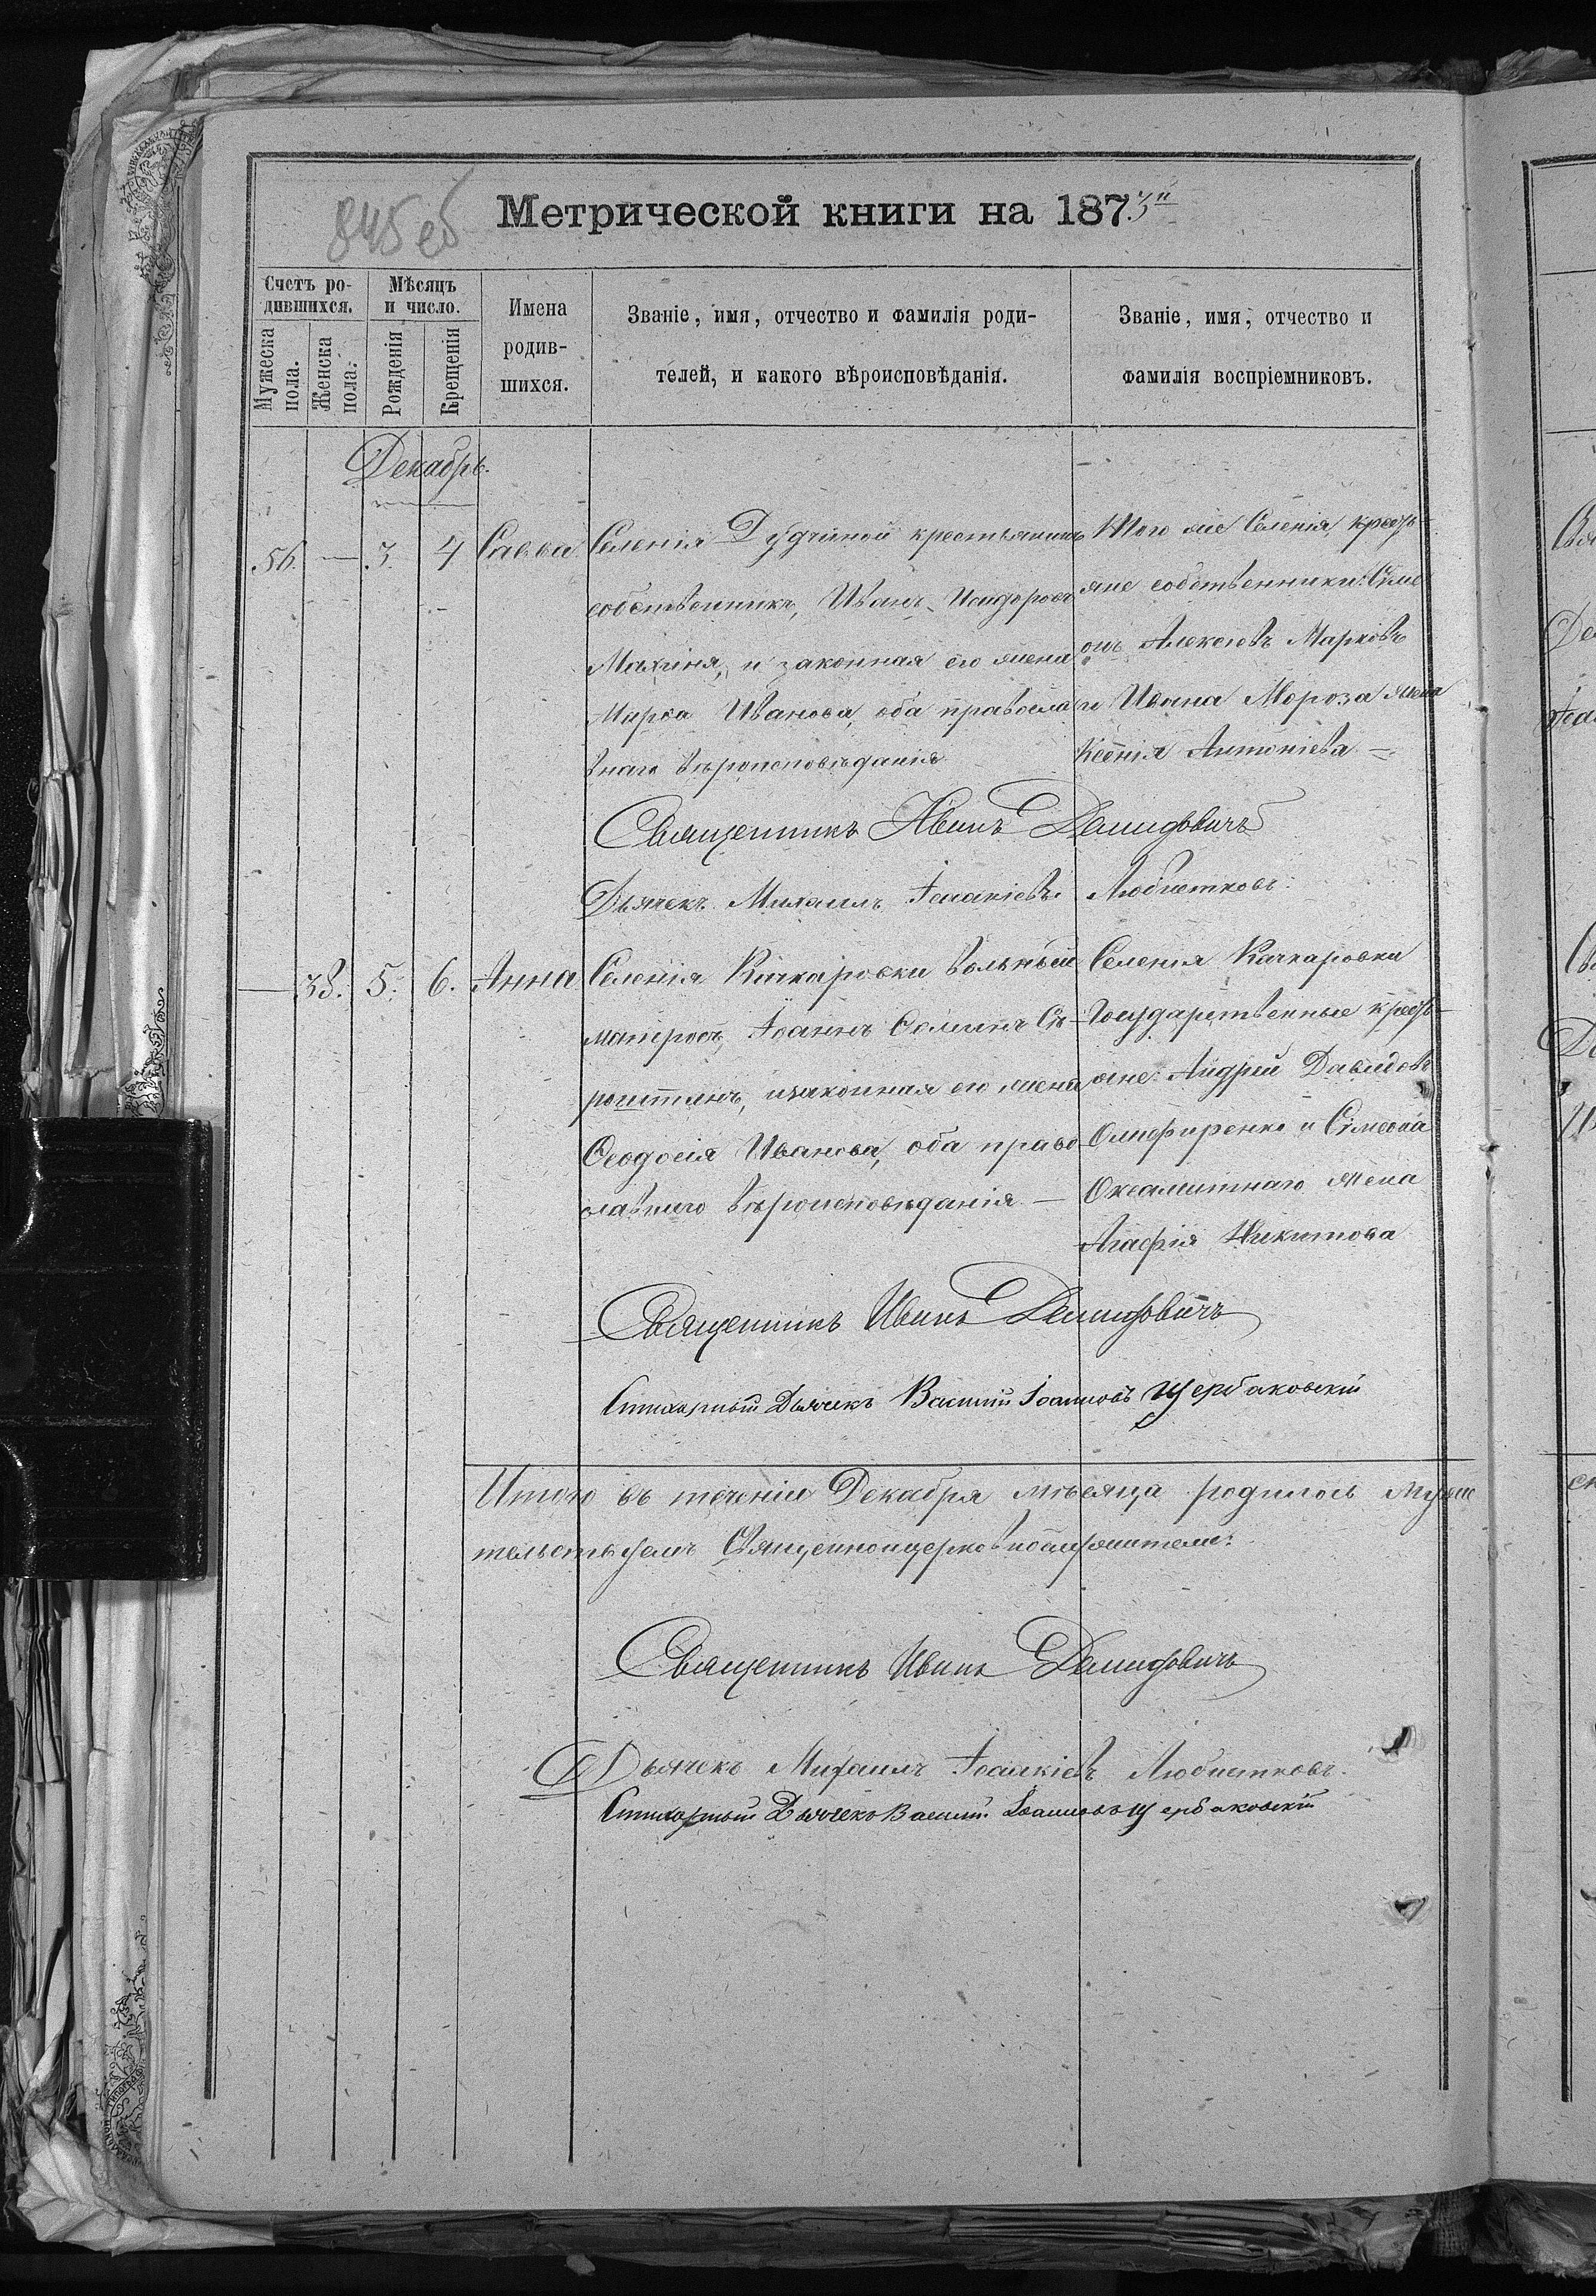 845 об
Метрической книги на 1873й
Счетъ ро-
дившихся.
Мужеска
пола.
Женска
пола.
Мѣсяцъ
и число.
Рожденія
Крещенія
Имена
родив-
шихся.
Званіе, имя, отчество и фамилія роди-
телей, и какого вѣроисповѣданія.
Званіе, имя, отчество и
фамилія воспріемниковъ.
Декабрь.
56. — 3. 4 Савва
Селенія Дудчиной крестьянинъ
собственникъ, Иванъ Исидоровъ
Махіня, и законная его жена
Марѳа Иванова, оба правосла
внаго вѣроисповѣданія
Того же Селенія, кресть-
яне собственники: Симе
онъ Алексѣевъ Марковъ
и Ивана Мороза жена
Ксенія Антоніева —
Священникъ Иванъ Демидовичъ
Дьячекъ Михаилъ Іоанкіевъ Любистковъ.
— 38. 5. 6. Анна
Селенія Качкаровки вольный
матросъ, Іоаннъ Ѳоминъ Си-
ротинъ, и законная его жена
Ѳеодосія Иванова, оба право
славнаго вѣроисповѣданія —
Селенія Качкаровки
Государственные кресть-
яне: Андрей Давидовъ
Олифиренко и Симеона
Оксамитнаго жена
Агафія Никитова
Священникъ Иванъ Демидовичъ
Стихарный Дьячекъ Василій Іоанновъ Щербаковскій
Итого въ теченіи Декабря мѣсяца родилось муж
тельствуемъ Священноцерковнослужители:
Священникъ Иванъ Демидовичъ
Дьячекъ Михаилъ Іоанкіевъ Любистковъ.
Стихарный Дьячекъ Василій Іоанновъ Щербаковскій